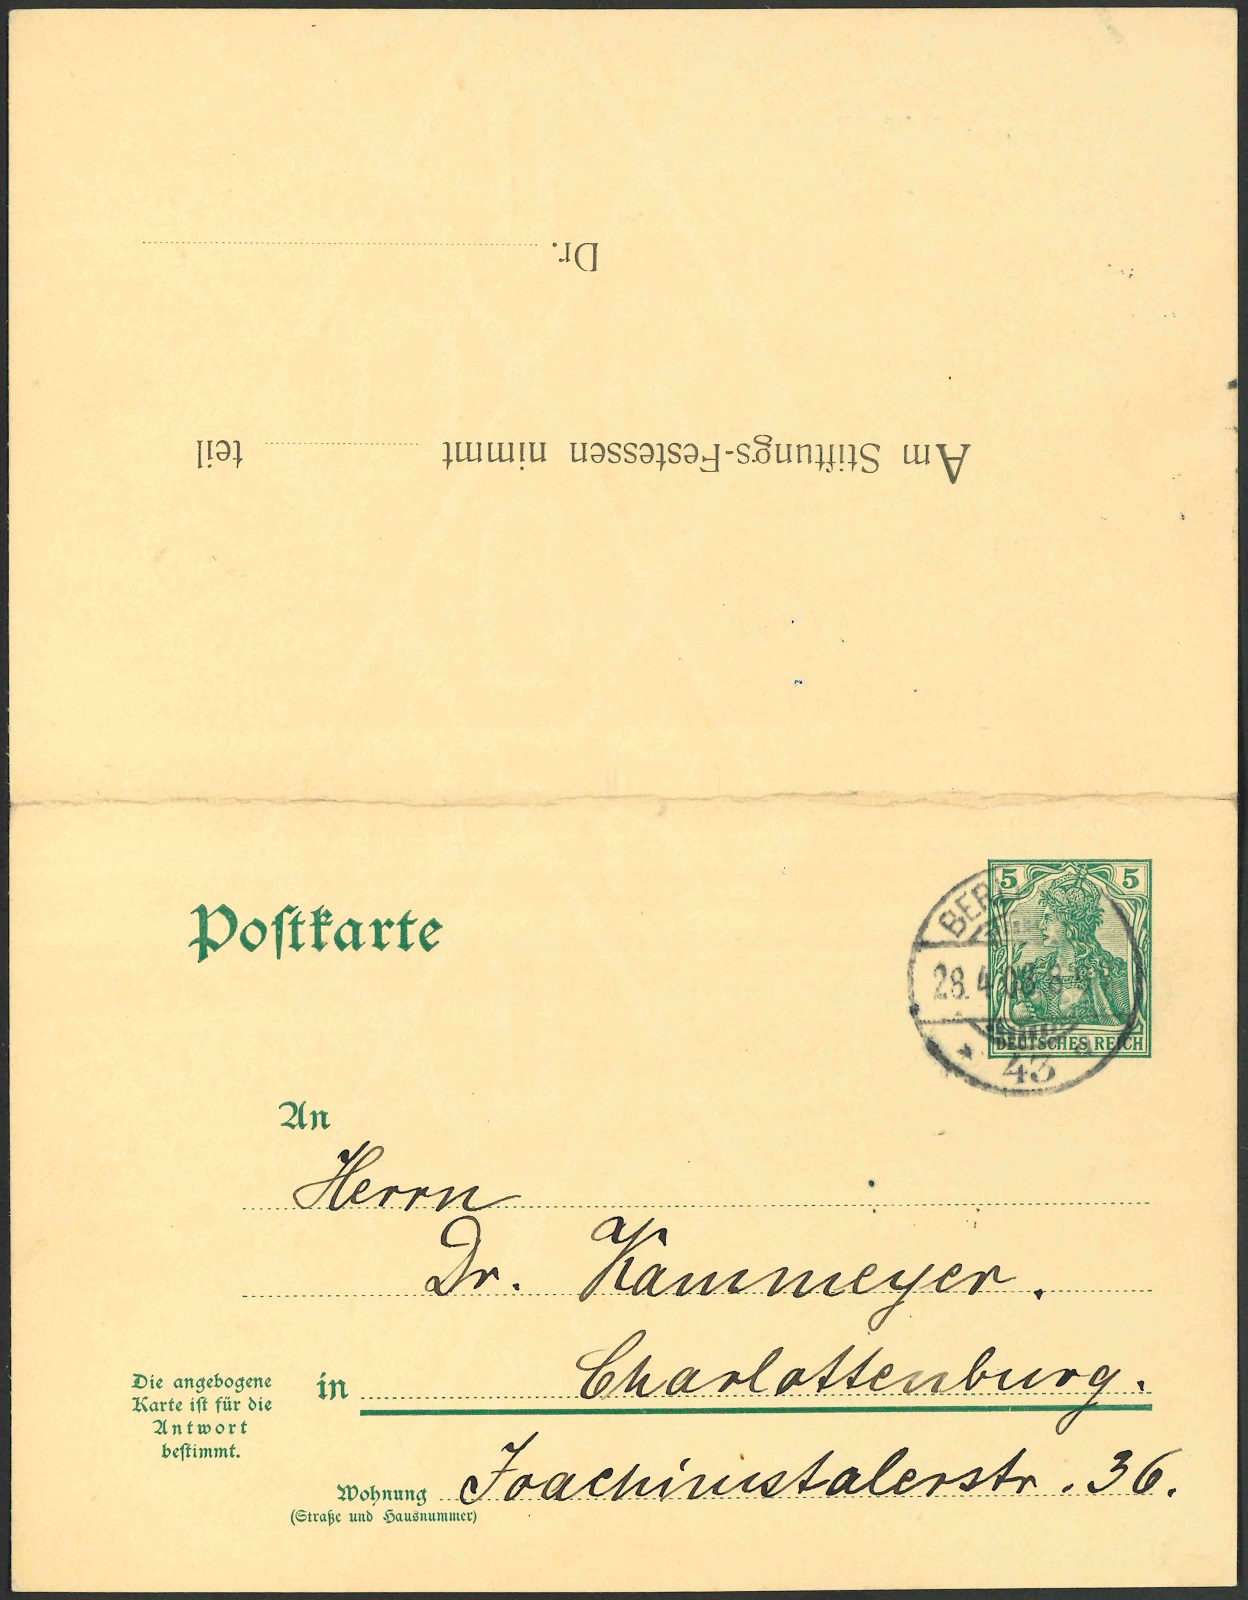 Dr.
Am Stiftungs-Festessen nimmt teil
Postkarte
5 5
28.4.08 8
DEUTSCHES REICH
43
An
Herrn
Dr. Kammeyer.
in Charlottenburg.
Die angebogene
Karte ist für die
Antwort
bestimmt.
Wohnung Joachimstalerstr. 36.
(Straße und Hausnummer)